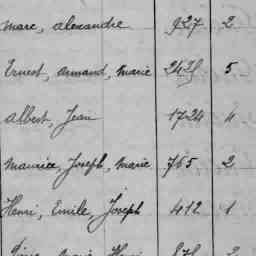 Marc, Alexandre 927 2
Ernest, Armand, Marie 5
Albert, Jean 1724 4
Maurice, Joseph, Marie 765 2
Henri, Emile, Joseph 412 1
Marie, Henri